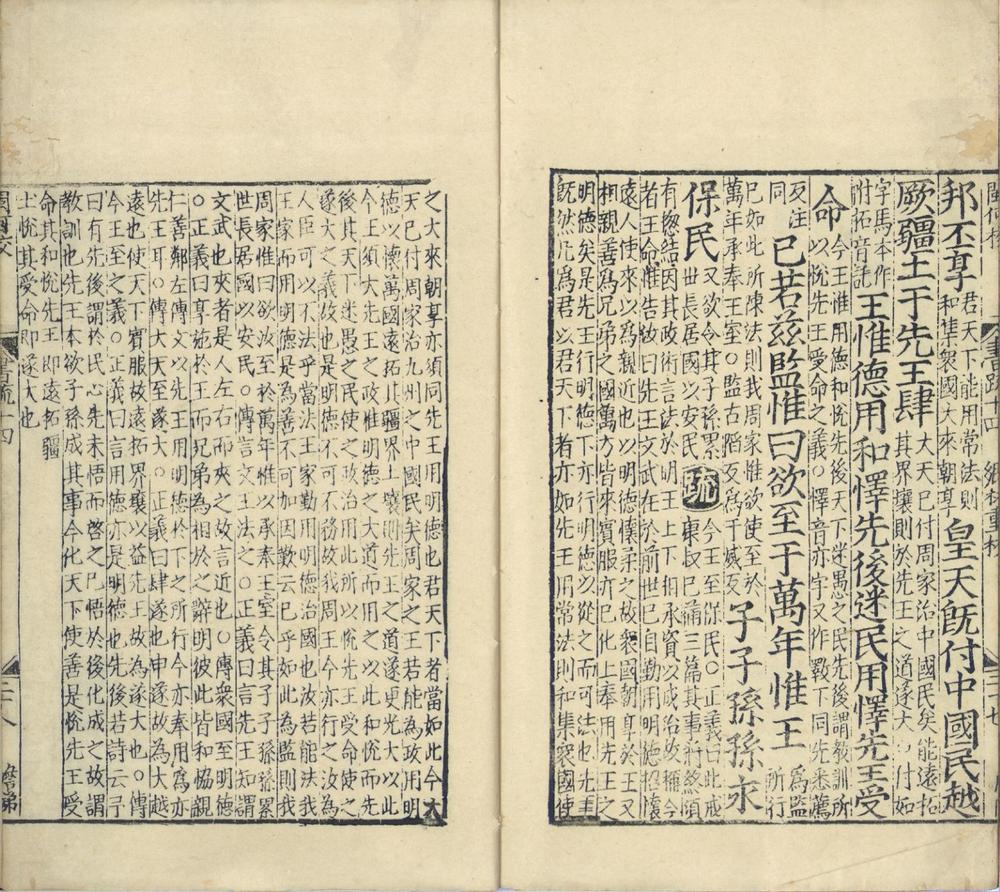 邦丕享君天下能用常法則和集衆國大來朝享皇天旣付中國民越
厥疆土于先王肆大天已付周家治中國民矣能遠拓其界壤則於先王之道遂大○付如
字馬本作附拓音託王惟德用和懌先後迷民用懌先王受
命今王惟用德和悅先後天下迷愚之民先後謂教訓所以悅先王受命之義○懌音亦字又作斁下同先悉薦
反注同已若茲監惟曰欲至于萬年惟王爲監所行
已如此所陳法則我周家惟欲使至於萬年承奉王室○監古陷反爲于威反子子孫孫永
保民又欲令其子孫累世長居國以安民疏今王至保民○正義曰此戒
康叔已滿三篇其事將終須
有揔結因其政術言法於明王上下相承資以成治故稱今
者王命惟告汝曰先王文武在於前世已自勤用明德招懷
遠人使來以爲親近也以明德懷柔之故衆國朝享於王又
相親善爲兄弟之國萬方皆來賓服亦已化上奉用先王之
明德矣是先王行明德下亦行明德以從之而可法也先王
旣然凡爲君以君天下者亦如先王用常法則和集衆國使
之大來朝享亦須同先王用明德也君天下者當如此今大
天已付周家治九州之中國民矣周家之王若能爲政用明
德以懷萬國遠拓其疆界土壤則先王之道遂更光大以此
今王須大先王之政惟明德之大道而用之以此和悅而先
後其天下迷愚之民使之政治用此所以悅先王受命使之
遂大之義故也是明德不可不務故我周王今亦行之汝
人臣可以不法乎當法王家勤用明德治國也汝若能法我
王家而用明德是爲善不可加因歎云已乎如此爲監則我
周家惟曰欲汝至於萬年惟以承奉王室令其子子孫孫累
世長居國以安民○傳言文王法之○正義曰言先王知謂
文武也夾者是人左右而夾之故言近也○傳衆國至明德
○正義曰享施於王而兄弟爲相於之辭明彼此皆和恊親
仁善鄰左傳文以先王用明德於下之所行今亦奉用爲亦
先王耳○傳大天至遂大○正義曰肆遂也申遂故爲大越
遠也使天下賓服故遠拓界壤以益先王故爲遂大也○傳
今王至之義○正義曰言用德亦是明德也先後若詩云予
曰有先後謂於民心先未悟而啓之已悟於後化成之故謂
教訓也先王本欲子孫成其事今化天下使善是悅先王受
命其和悅先王即遠拓疆
土悅其受命即遂大也